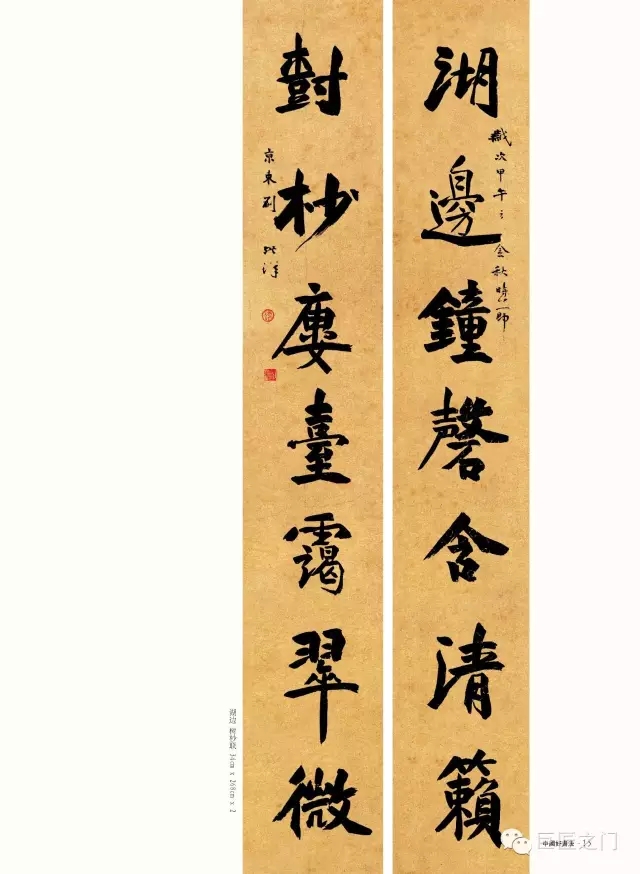 湖邊鐘磬含清籟
歲次甲午之金秋時節
樹杪廔臺靄翠微
京東劉洪洋
湖边 树杪联 34cm x 268cm x 2
巨匠之门
中國好書法 · 15